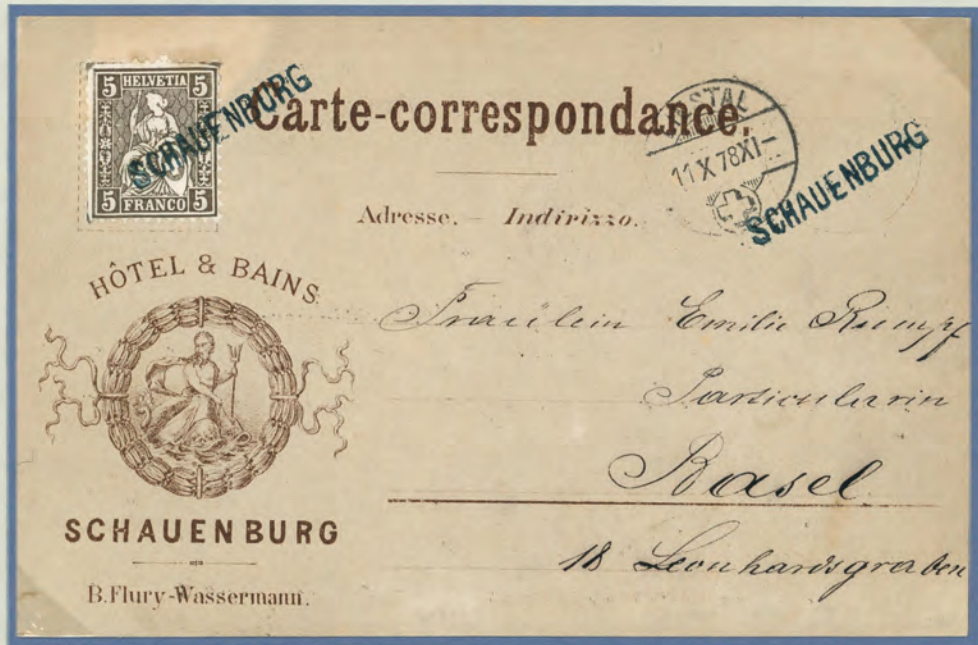 5 HELVETIA 5
5 FRANCO 5
SCHAUENBURG
Carte-correspondance.
STAL
11 X 78 XI-
SCHAUENBURG
Adresse. - Indirizzo.
HÔTEL & BAINS
SCHAUENBURG
B. Flury-Wassermann.
Fräulein Emilie Rumpf
Particularin
Basel
18 Leonhardsgraben